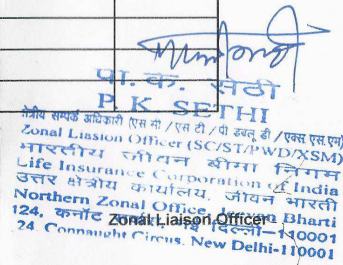 पा. क. सेठी
P K SETHI
क्षेत्रीय सम्पर्क अधिकारी (एस सी / एस टी / पी डबलू डी / एक्स एस.एम)
Zonal Liasion Officer (SC/ST/PWD/XSM)
भारतीय जीवन बीमा निगम
Life Insurance Corporation of India
उत्तर क्षेत्रीय कार्यालय, जीवन भारती
Northern Zonal Office, Jeevan Bharti
124, कनॉट दिल्ली-110001
Zonal Liaison Officer
24, Connaught Circus, New Delhi-110001